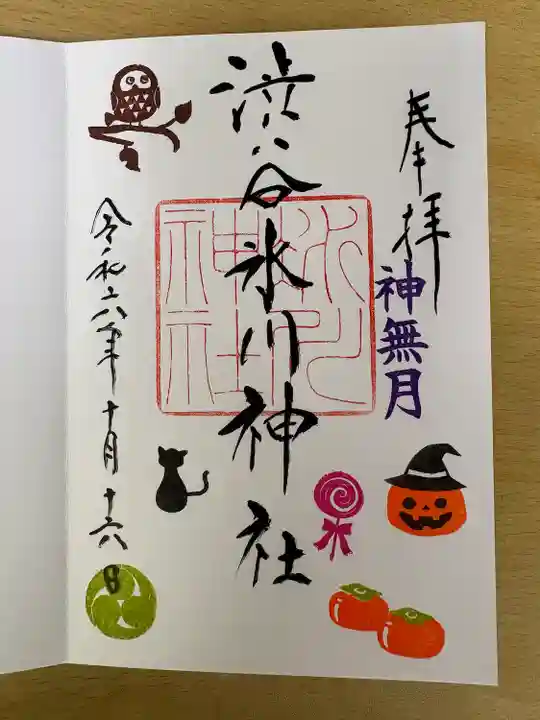 奉拝
神無月
渋谷氷川神社
氷川
神社
令和六年十月十六日